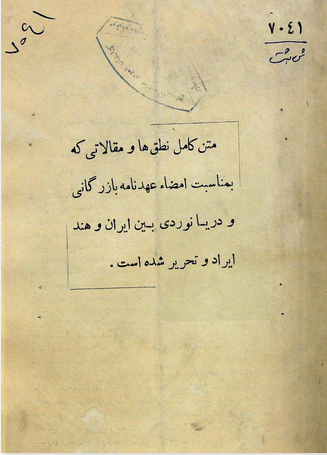 ۷۰۴۱
ش ثبت
۷۰۴۱
متن کامل نطق ها و مقالاتی که
بمناسبت امضاء عهدنامه بازرگانی
و دریا نوردی بین ایران و هند
ایراد و تحریر شده است .